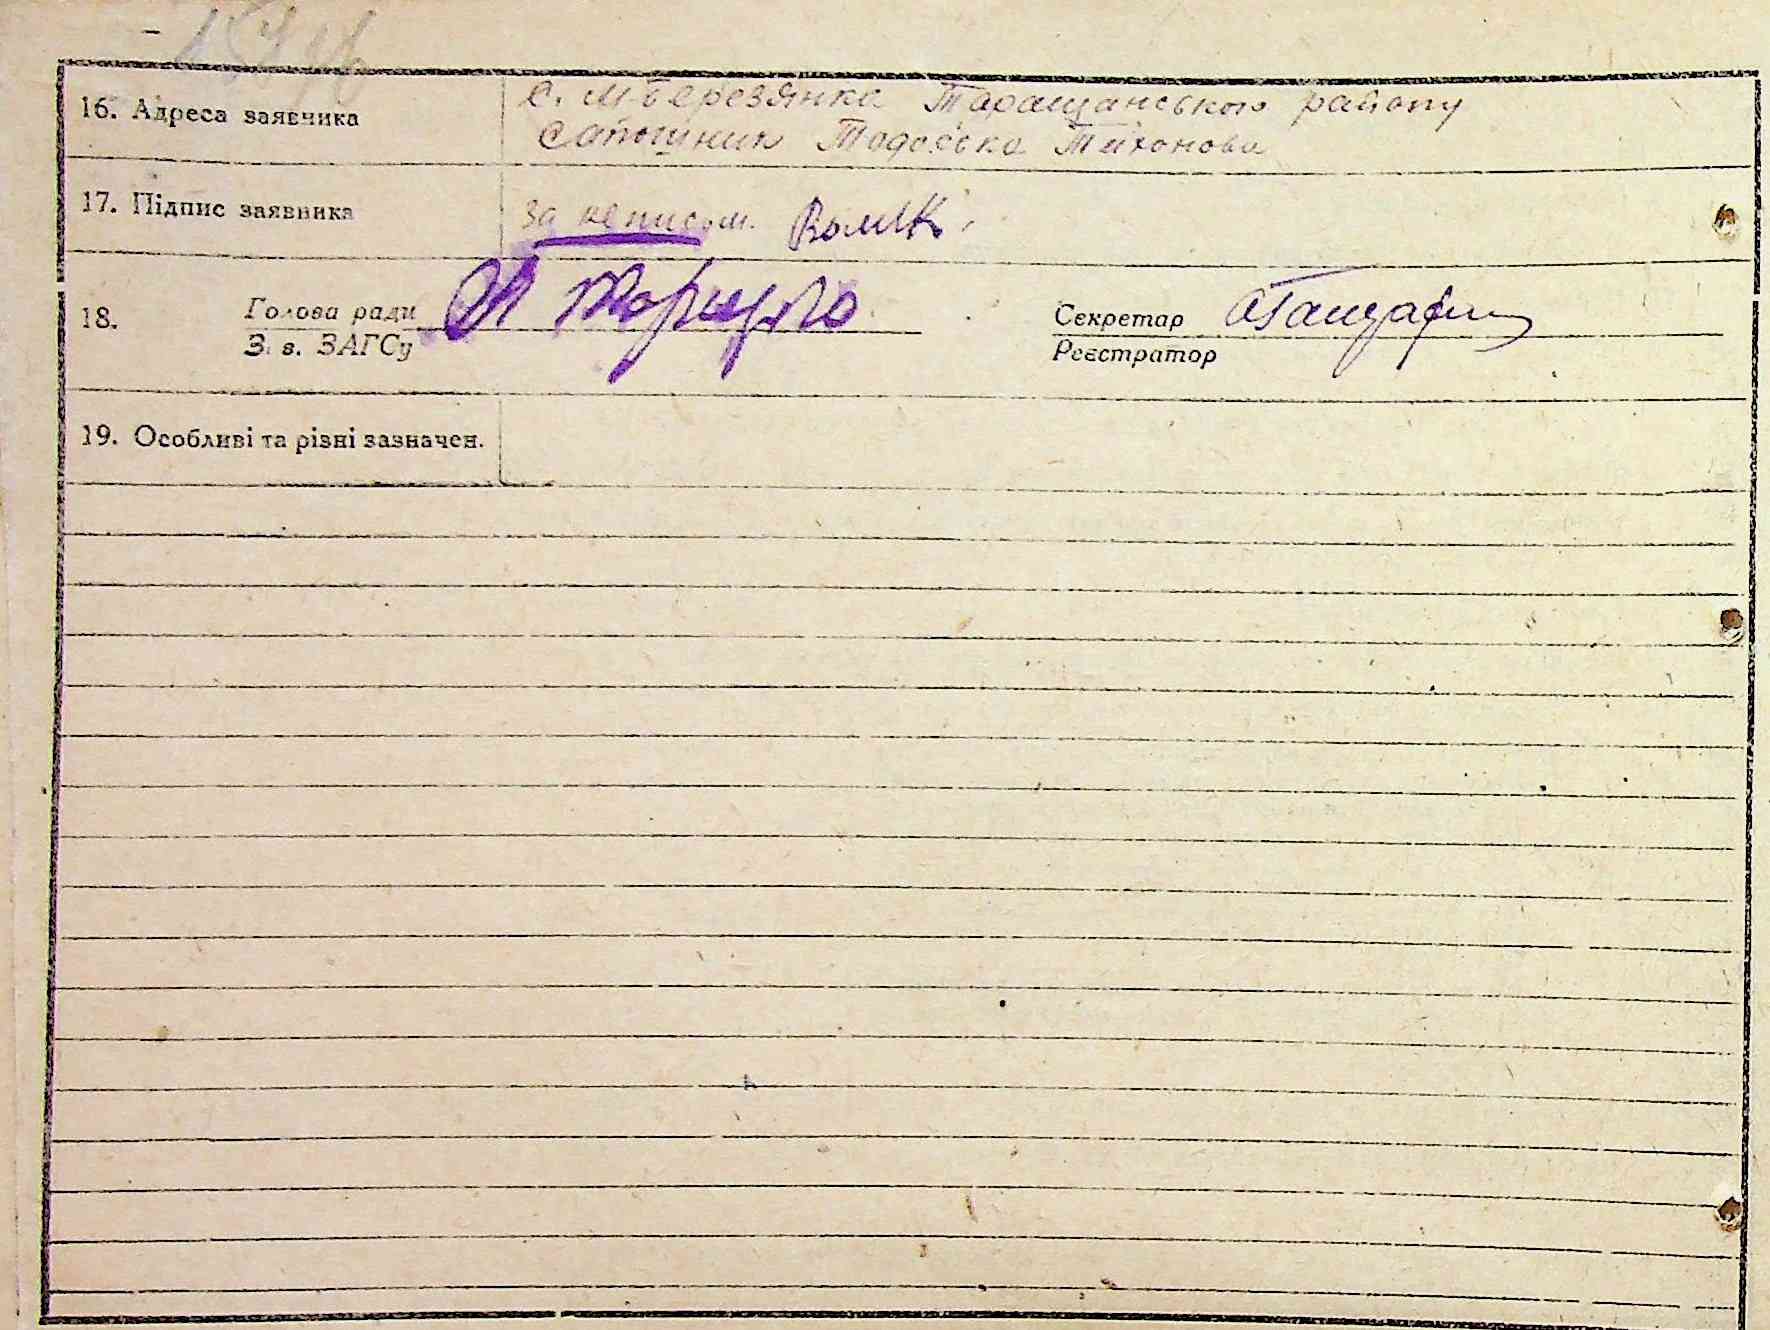 16. Адреса заявчика
с. М-Березянка Таращанського району
Сапошник Тодоська Тихонова
17. Підпис заявника
за неписьм.
18.
Голова ради
Зав. ЗАГСу
Секретар
Реєстратор
19. Особливі та різні зазначен.